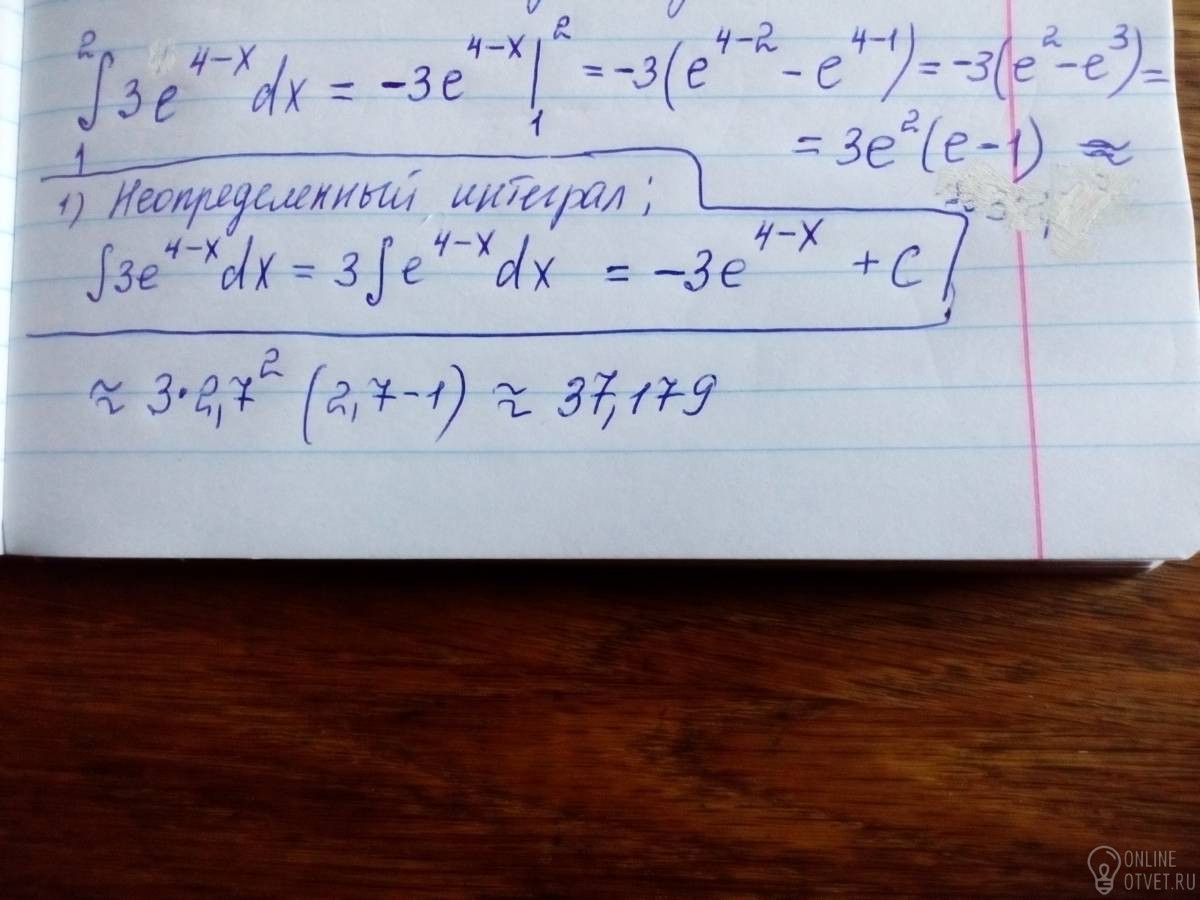 ∫₁² 3e^(4-x) dx = -3e^(4-x) |₁² = -3(e^(4-2) - e^(4-1)) = -3(e² - e³) =
= 3e²(e-1) ≈
1) Неопределенный интеграл;
∫3e^(4-x) dx = 3∫e^(4-x) dx = -3e^(4-x) + C
≈ 3·2,7² (2,7-1) ≈ 37,179
ONLINE
OTVET.RU